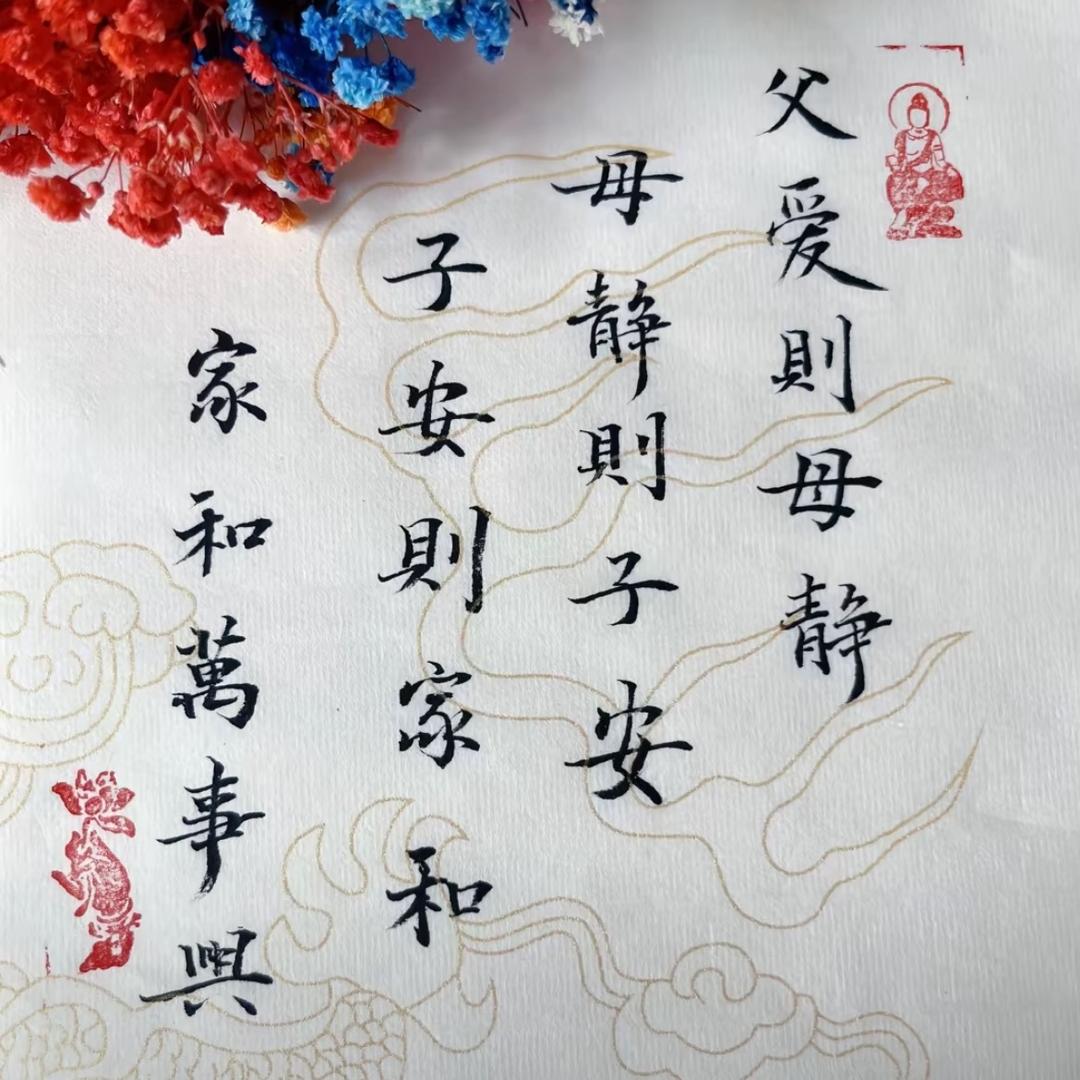 父爱則母静
母静則子安
子安則家和
家和萬事興